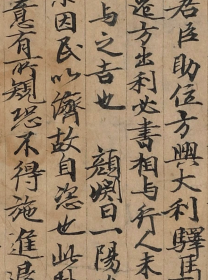 君臣助位方興大利驛馬
造方出利必書相与行人未
与之吉也 顔淵曰一陽
衆因民以濟故自恣也此
意有所疑恐不得施進退